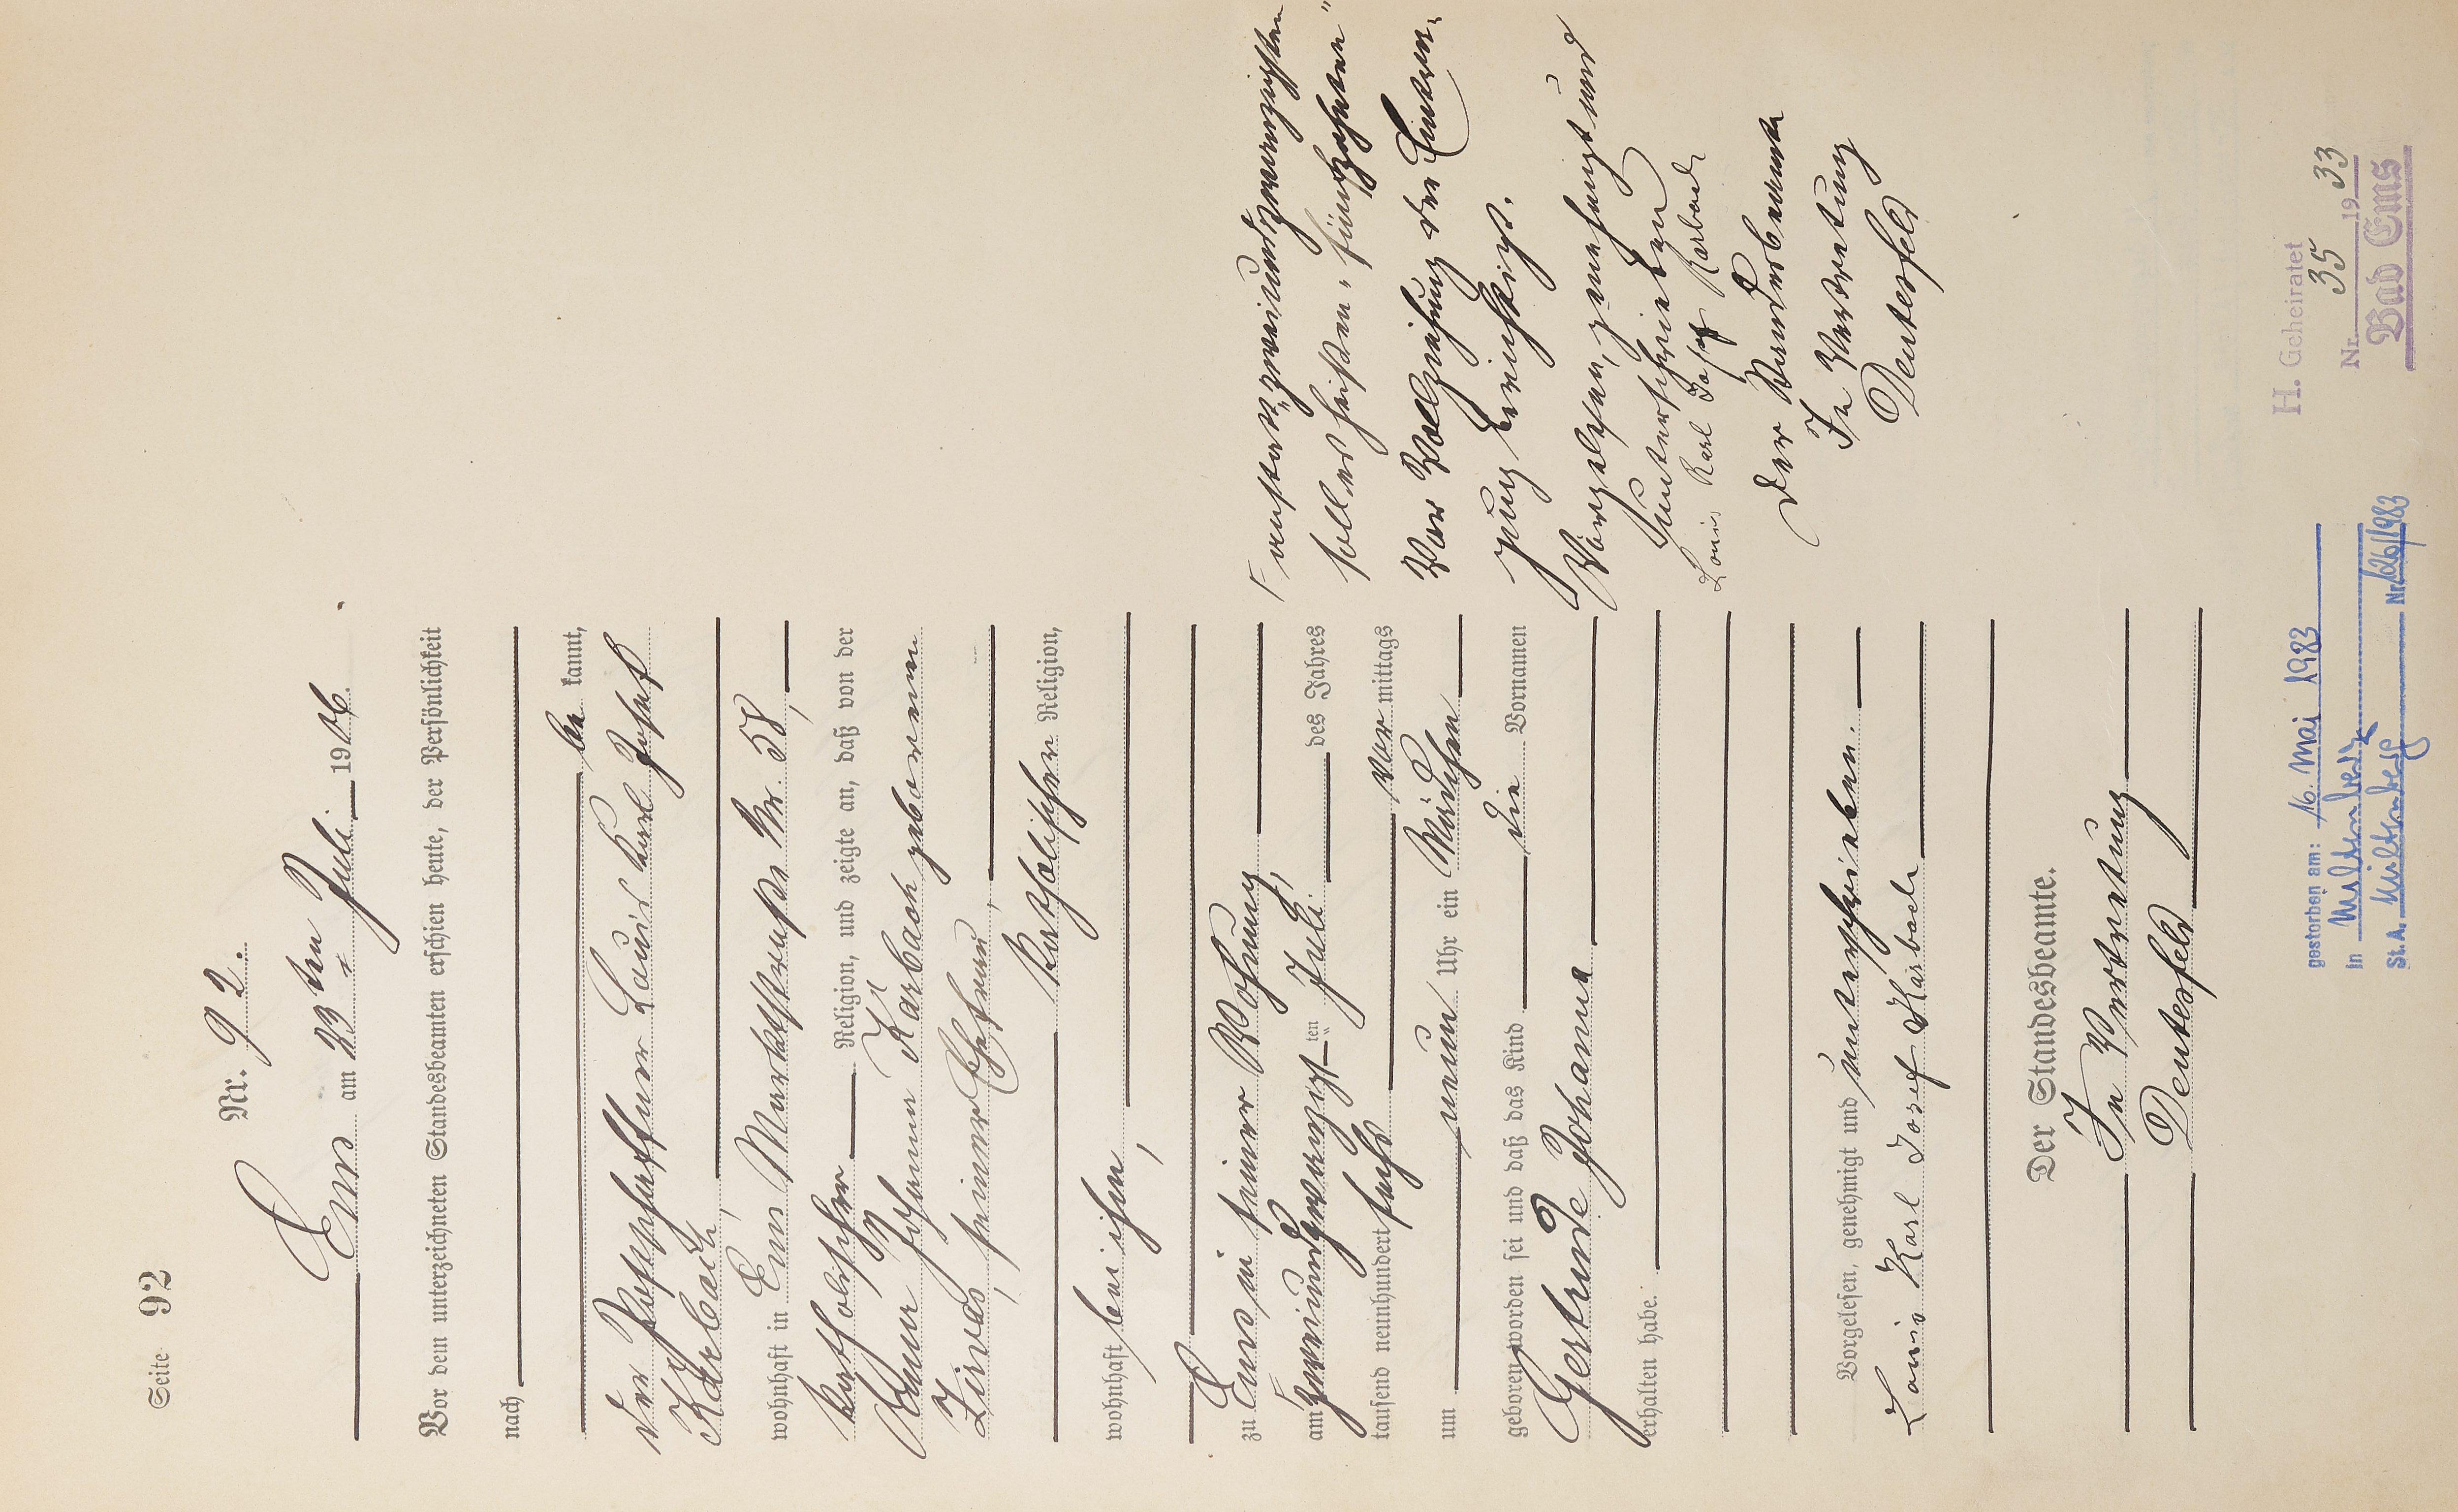 Seite 92
Nr. 92.
Ems am 23ten Juli 1906.
Vor dem unterzeichneten Standesbeamten erschien heute, der Persönlichkeit
nach
be kannt,
der Postschaffner Louis Karl Josef
Karbach,
wohnhaft in Ems Marktstraße Nr. 58,
katholischer Religion, und zeigte an, daß von der
Anna Johanna Karbach geborenen
Zirvas, seiner Ehefrau,
katholischer Religion,
wohnhaft bei ihm,
zu Ems in seiner Wohnung,
am zweiundzwanzigsten Juli, des Jahres
tausend neunhundert sechs vor mittags
um neun Uhr ein Mädchen
geboren worden sei und daß das Kind die Vornamen
Gertrude Johanna
erhalten habe.
Vorgelesen, genehmigt und unterschrieben.
Louis Karl Josef Karbach
Der Standesbeamte.
In Vertretung
Deutesfeld
anstatt "zweiundzwanzigsten
soll es heißen "fünfzehnten"
Vor Vollziehung der Eintra-
gung berichtigt.
Vorgelesen, genehmigt und
unterschrieben
Louis Karl Josef Karbach
Der Standesbeamte
In Vertretung
Deutesfeld
gestorben am: 16. Mai 1983
in Miltenberg
St.A. Miltenberg Nr. 126/1983
H. Geheiratet
Nr. 35 1933
Bad Ems